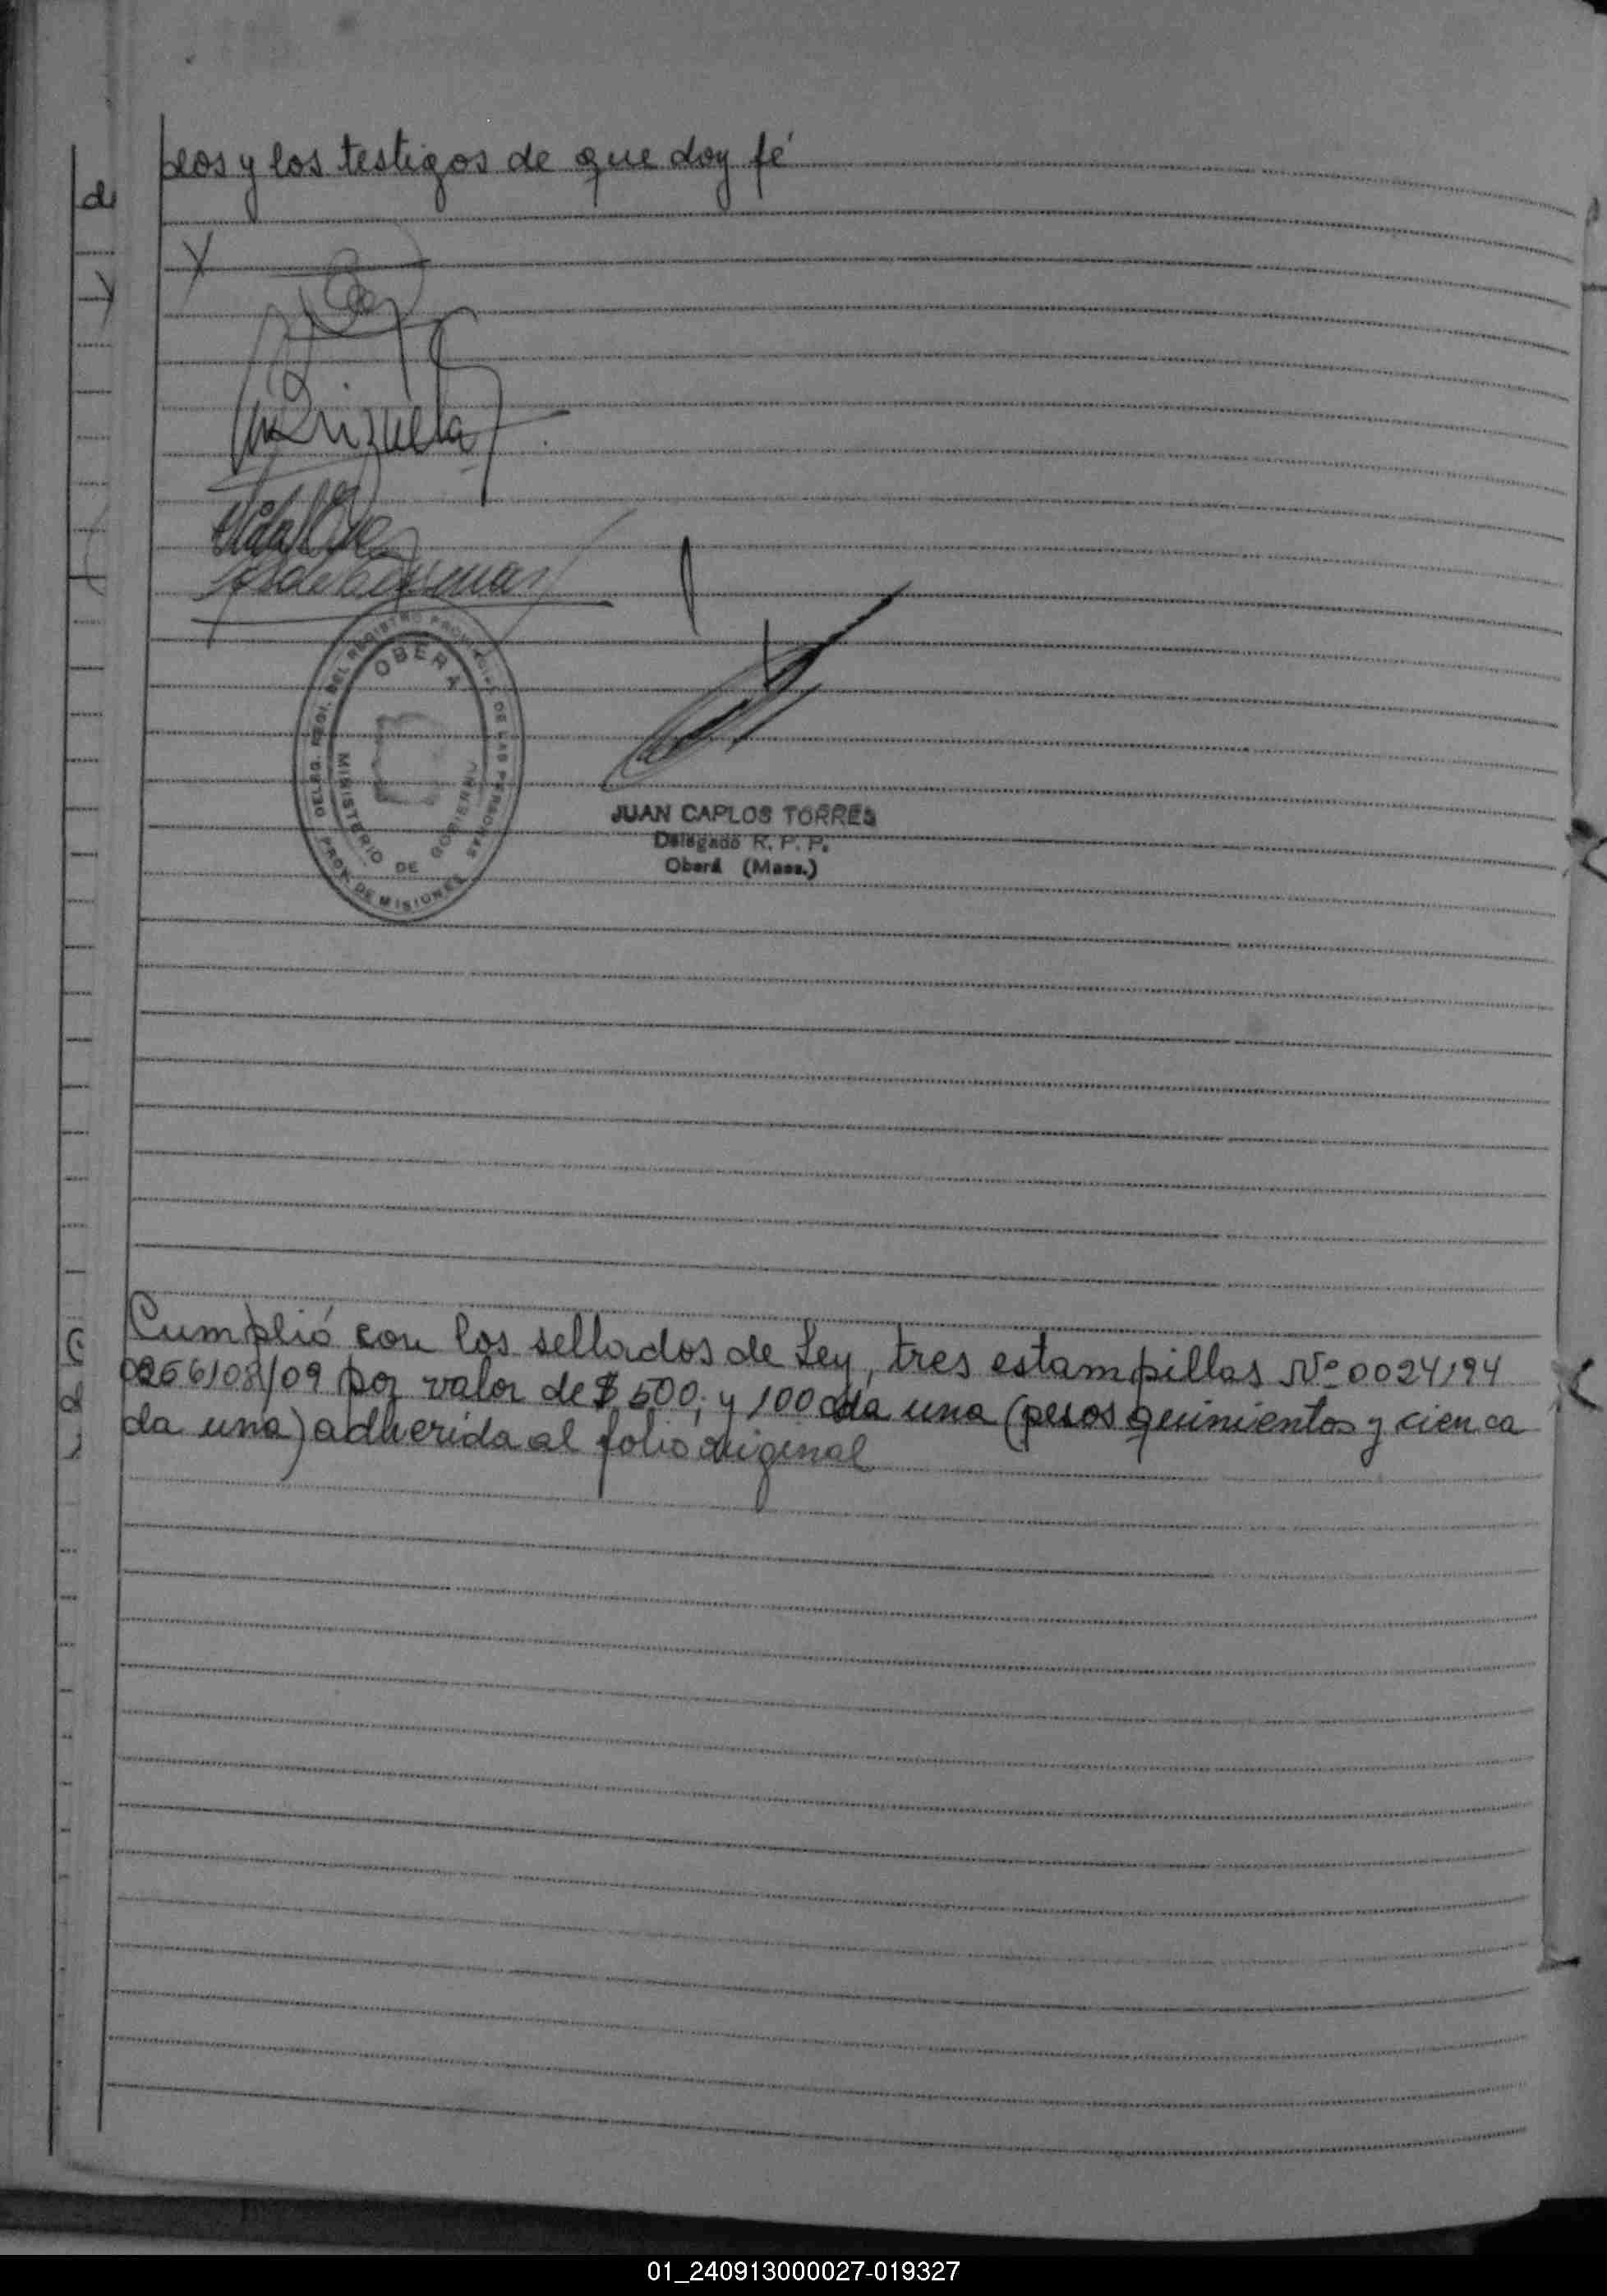 peos y los testigos de que doy fé
DELEG. REGI. DEL REGISTRO PROVINCIAL DE LAS PERSONAS
OBERA
MINISTERIO DE GOBIERNO
PROV. DE MISIONES
JUAN CARLOS TORRES
Delegado R. P. P.
Oberá (Mnes.)
Cumplió con los sellados de Ley, tres estampillas Nº 0024194
por valor de $ 500; y 100 cda una (pesos quinientos y cien ca
da una) adherida al folio original
01_240913000027-019327